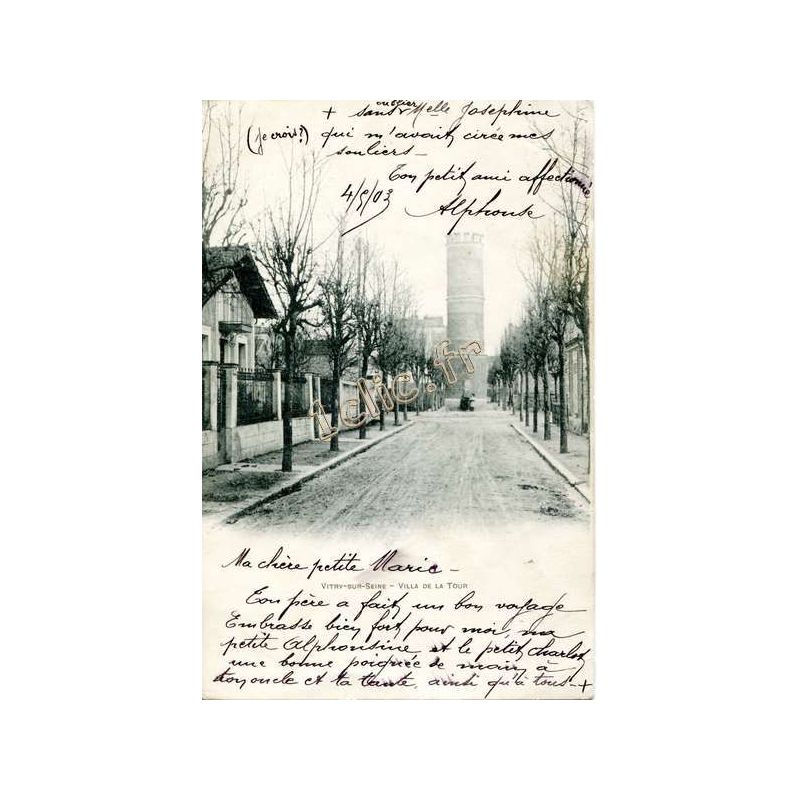 + sans oublier Melle Joséphine
(je crois?) qui m'avait cirée mes
souliers —
Ton petit ami affectionné
4/5/03
Alphonse
1clic.fr
Ma chère petite Marie —
VITRY-SUR-SEINE - VILLA DE LA TOUR
Ton père a fait un bon voyage
Embrasse bien fort pour moi, ma
petite Alphonsine et le petit Charlot
une bonne poignée de main à
ton oncle et ta tante, ainsi qu'à tous - +